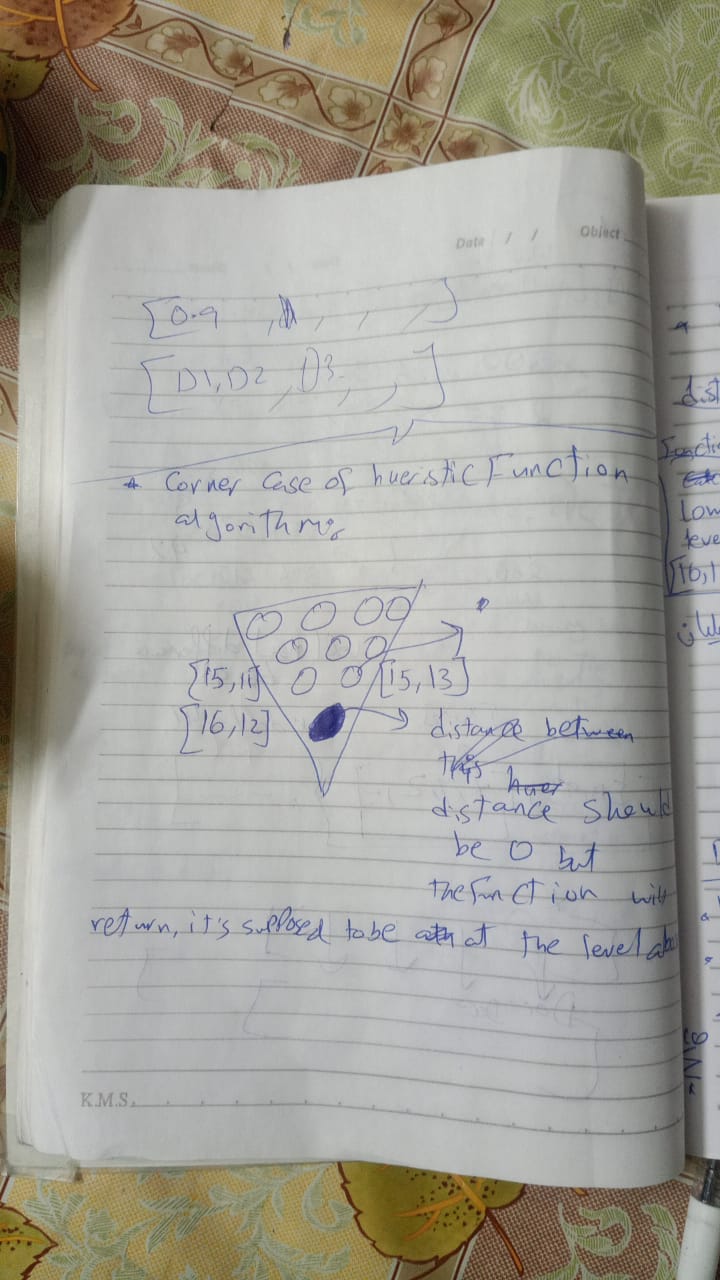 Date / / Object
[0.9 , , , , ]
[D1, D2, D3, , , ]
* Corner Case of hueristic Function
algorithms
[15,11] [15,13]
[16,12] distance between
this
distance should
be 0 but
the function will
return, it's suppose to be at the level
K.M.S.
dist
Functio
Low
leve
[16,1